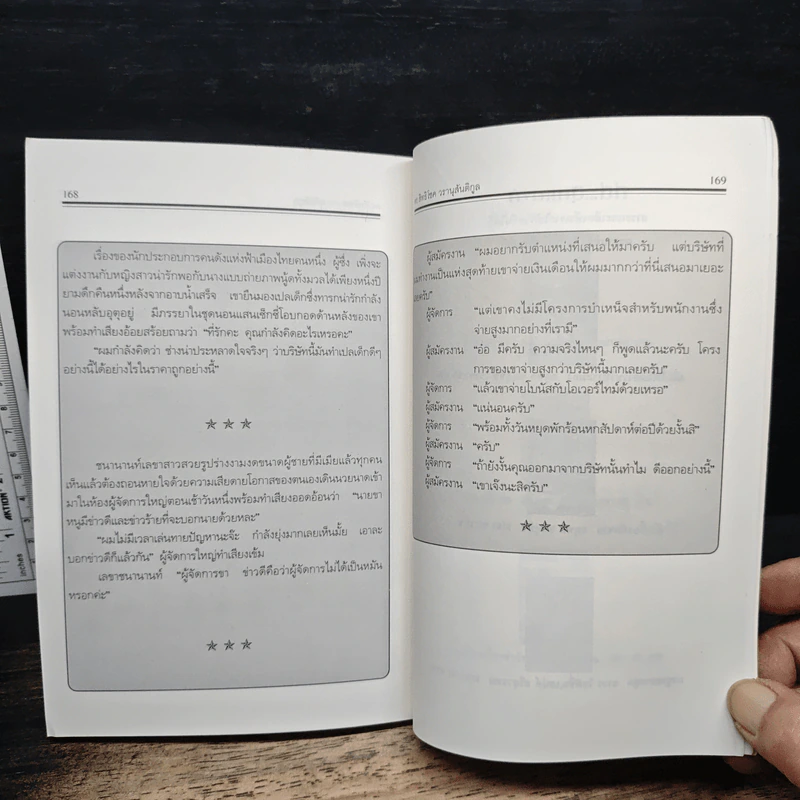 168
เรื่องของนักประกอบการคนดังแห่งฟ้าเมืองไทยคนหนึ่ง ผู้ซึ่ง เพิ่งจะ
แต่งงานกับหญิงสาวน่ารักพอกับนางแบบถ่ายภาพนู้ดทั้งมวลได้เพียงหนึ่งปี
ยามดึกคืนหนึ่งหลังจากอาบน้ำเสร็จ เขายืนมองเปลเด็กซึ่งทารกน่ารักกำลัง
นอนหลับอุตุอยู่ มีภรรยาในชุดนอนแสนเซ็กซี่โอบกอดด้านหลังของเขา
พร้อมทำเสียงอ้อยสร้อยถามว่า “ที่รักคะ คุณกำลังคิดอะไรเหรอคะ”
“ผมกำลังคิดว่า ช่างน่าประหลาดใจจริงๆ ว่าบริษัทนี้มันทำเปลเด็กดีๆ
อย่างนี้ได้อย่างไรในราคาถูกอย่างนี้”
ชนานานท์เลขาสาวสวยรูปร่างงามงดขนาดผู้ชายที่มีเมียแล้วทุกคน
เห็นแล้วต้องถอนหายใจด้วยความเสียดายโอกาสของตนเองเดินนวยนาดเข้า
มาในห้องผู้จัดการใหญ่ตอนเช้าวันหนึ่งพร้อมทำเสียงออดอ้อนว่า “นายขา
หนูมีข่าวดีและข่าวร้ายที่จะบอกนายด้วยหละ”
“ผมไม่มีเวลาเล่นทายปัญหานะจ๊ะ กำลังยุ่งมากเลยเห็นมั้ย เอาละ
บอกข่าวดีก็แล้วกัน” ผู้จัดการใหญ่ทำเสียงเข้ม
เลขาชนานานท์ “ผู้จัดการขา ข่าวดีคือว่าผู้จัดการไม่ได้เป็นหมัน
หรอกค่ะ”
สิทธิโชค วรานุสันติกูล 169
ผู้สมัครงาน “ผมอยากรับตำแหน่งที่เสนอให้มาครับ แต่บริษัทที่
ทำงานเป็นแห่งสุดท้ายเขาจ่ายเงินเดือนให้ผมมากกว่าที่นี่เสนอมาเยอะ
ครับ”
ผู้จัดการ “แต่เขาคงไม่มีโครงการบำเหน็จสำหรับพนักงานซึ่ง
จ่ายสูงมากอย่างที่เรามี”
ผู้สมัครงาน “อ๋อ มีครับ ความจริงไหนๆ ก็พูดแล้วนะครับ โครง
การของเขาจ่ายสูงกว่าบริษัทนี้มากเลยครับ”
ผู้จัดการ “แล้วเขาจ่ายโบนัสกับโอเวอร์ไทม์ด้วยเหรอ”
ผู้สมัครงาน “แน่นอนครับ”
ผู้จัดการ “พร้อมทั้งวันหยุดพักร้อนหกสัปดาห์ต่อปีด้วยงั้นสิ”
ผู้สมัครงาน “ครับ”
ผู้จัดการ “ถ้ายังงั้นคุณออกมาจากบริษัทนั้นทำไม ดีออกอย่างนี้”
ผู้สมัครงาน “เขาเจ๊งนะสิครับ”